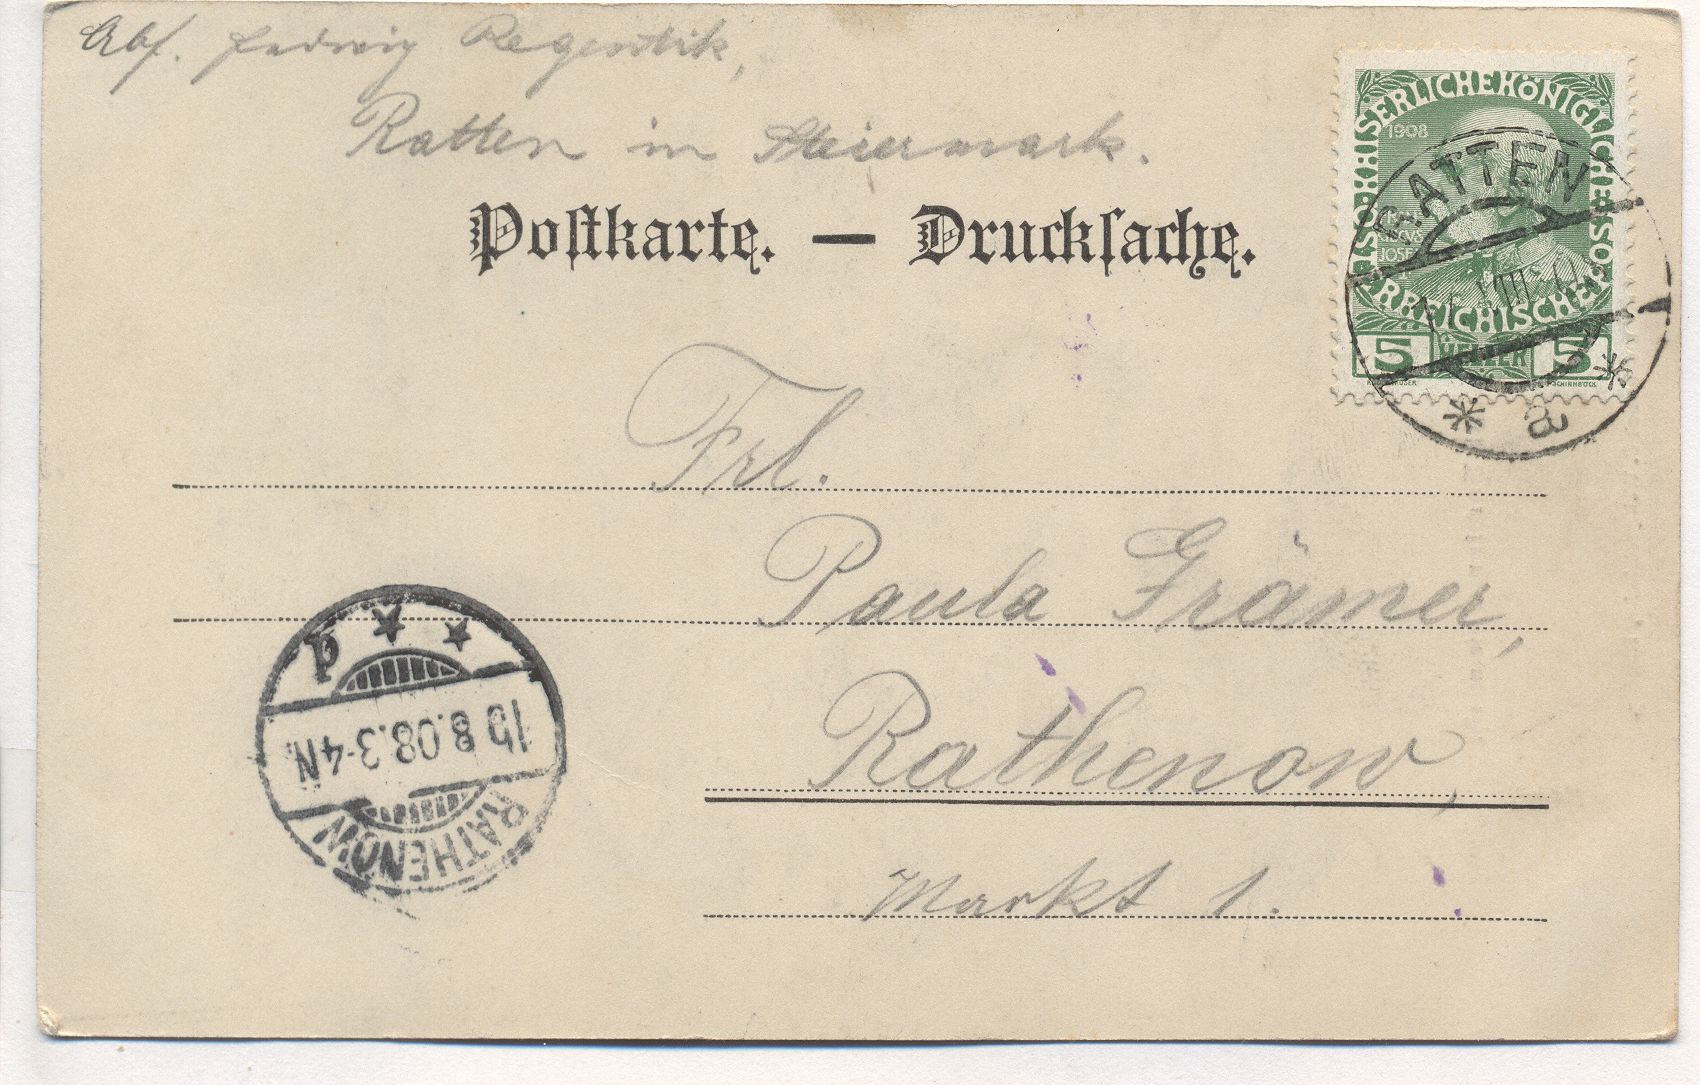 Abs. Hedwig Regentik,
Ratten in Steiermark.
Postkarte. — Drucksache.
KAISERLICHE KÖNIGLICHE ÖSTERREICHISCHE
1908
5 HELLER 5
RATTEN
VIII
* a *
Frl.
Paula Krämer,
Rathenow,
Markt 1.
RATHENOW
19.8.08.3-4N.
* * p